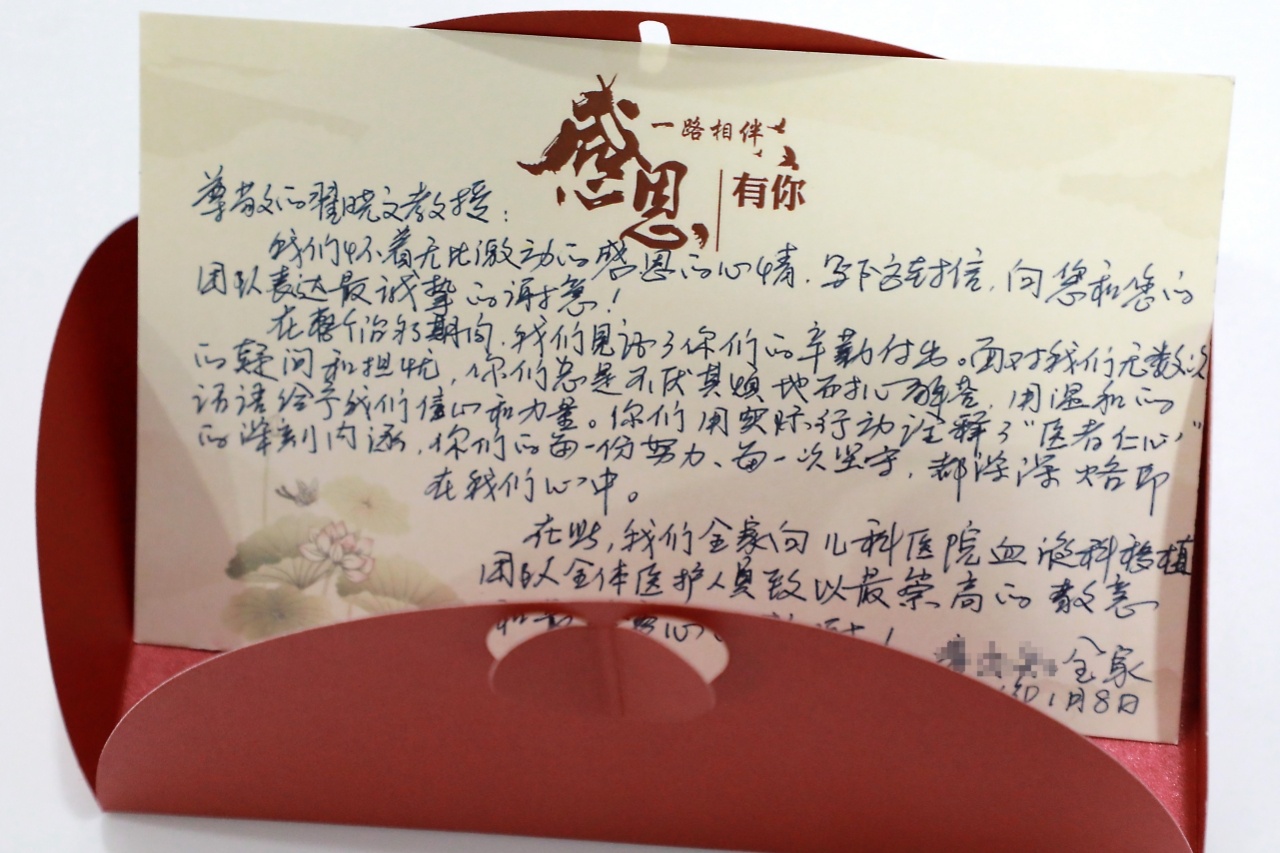 感恩
一路相伴
有你
尊敬的翟晓文教授：
我们怀着无比激动的感恩的心情，写下这封信，向您和您的
团队表达最诚挚的谢意！
在整个治疗期间，我们见证了你们的辛勤付出。面对我们无数次
的疑问和担忧，你们总是不厌其烦地耐心解答，用温和的
话语给予我们信心和力量。你们用实际行动诠释了“医者仁心”
的深刻内涵，你们的每一份努力、每一次坚守，都深深烙印
在我们心中。
在此，我们全家向儿科医院血液科移植
团队全体医护人员致以最崇高的敬意
和
全家
1月8日